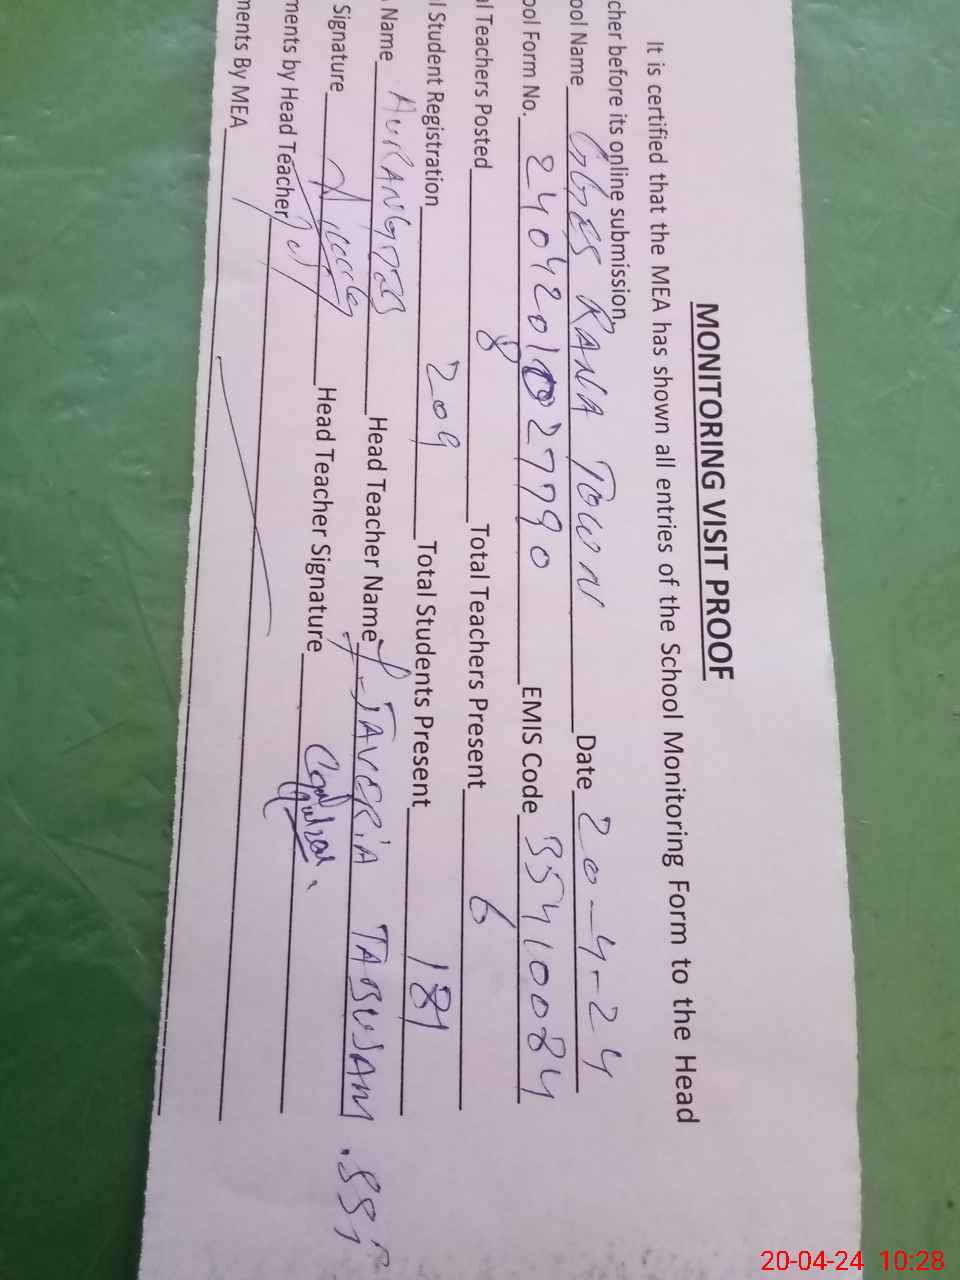 MONITORING VISIT PROOF
It is certified that the MEA has shown all entries of the School Monitoring Form to the Head
cher before its online submission.
ool Name GGES RANA TOWN Date 20-4-24
ool Form No. 24042010 2790 EMIS Code 35410084
al Teachers Posted 8 Total Teachers Present 6
l Student Registration 209 Total Students Present 181
Name AURANGZEB Head Teacher Name JAVERIA TABUSAM
Signature Head Teacher Signature
ments by Head Teacher
ments By MEA
20-04-24 10:28